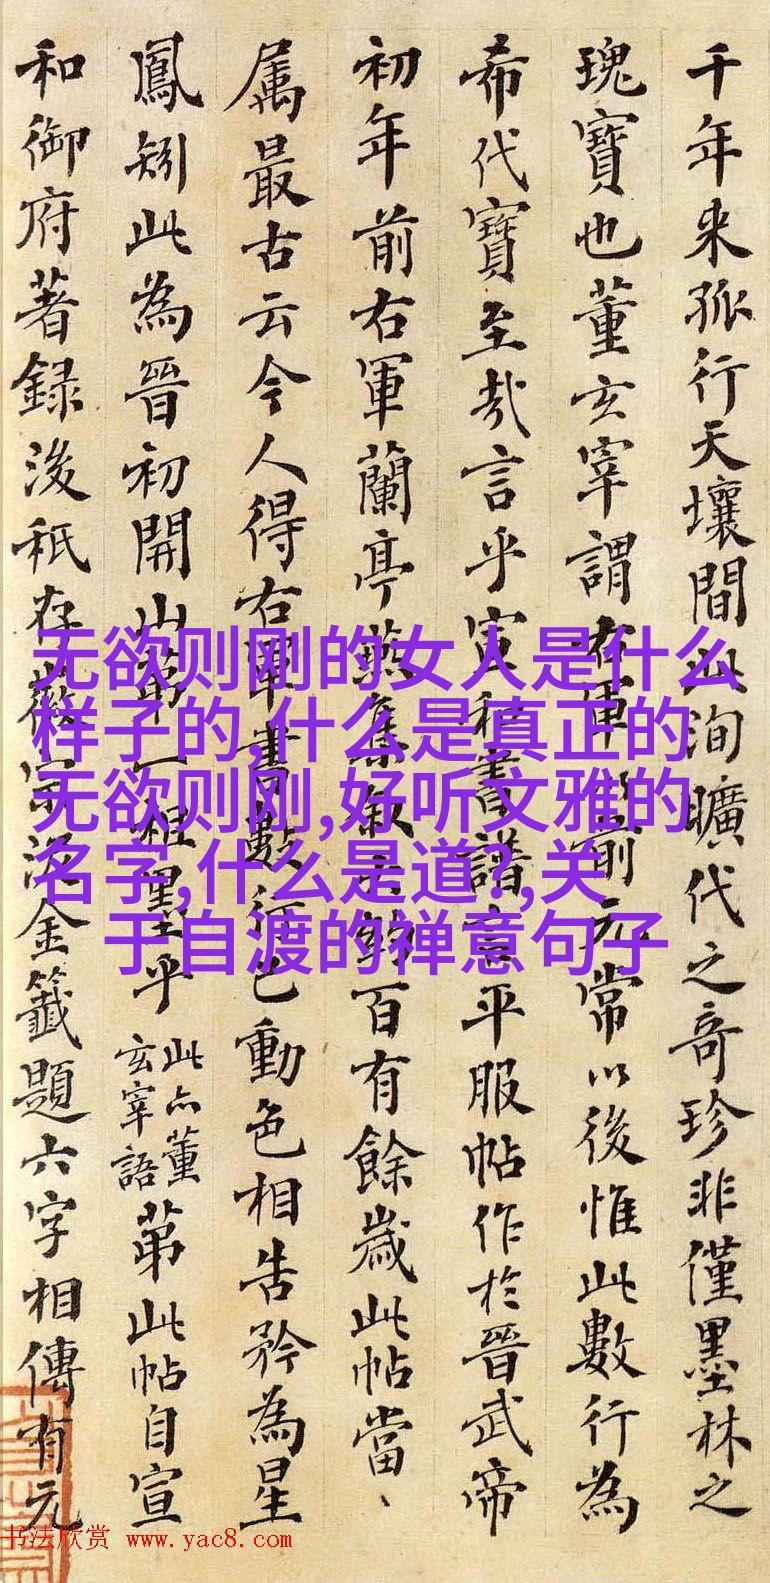 千年来孤行天壤間此洵曠代之奇珍非僅墨林之
瑰寶也董玄宰謂右軍以前元常以後惟此數行為
希代寶至哉言乎宣和書譜言平服帖作於晉武帝
初年前右軍蘭亭燕集敘大約百有餘歲此帖當、
属最古云今人得右軍書數行已動色相告矜為星
鳳矧此為晉初開山第一祖墨乎
此亦董
玄宰語
第此帖自宣
和御府著録後秖存徽宗泥金籤題六字相傳有元
无欲则刚的女人是什么
样子的,什么是真正的
无欲则刚,好听文雅的
名字,什么是道?,关
于自渡的禅意句子
书法欣赏 www.yac8.com